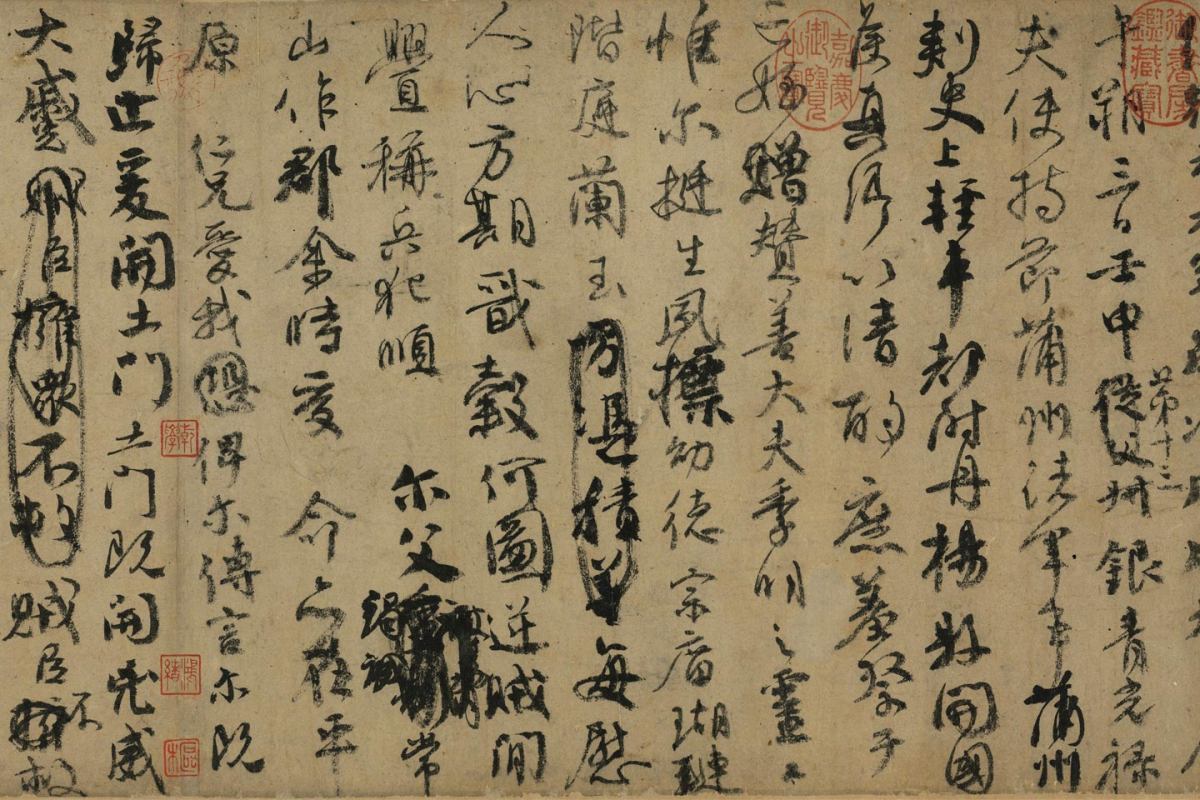 午朔三日壬申第十三從父叔銀青光祿
夫使持節蒲州諸軍事蒲州
刺史上輕車都尉丹楊縣開國
侯真卿以清酌庶羞祭于
亡姪贈贊善大夫季明之靈曰
惟尔挺生夙標幼德宗廟瑚璉
階庭蘭玉方憑積善每慰
人心方期戩穀何圖逆賊閒
釁稱兵犯順尔父竭誠常
山作郡余時受命亦在平
原仁兄愛我恐俾尔傳言尔既
歸止爰開土門土門既開兇威
大蹙賊臣擁眾不救賊臣不救